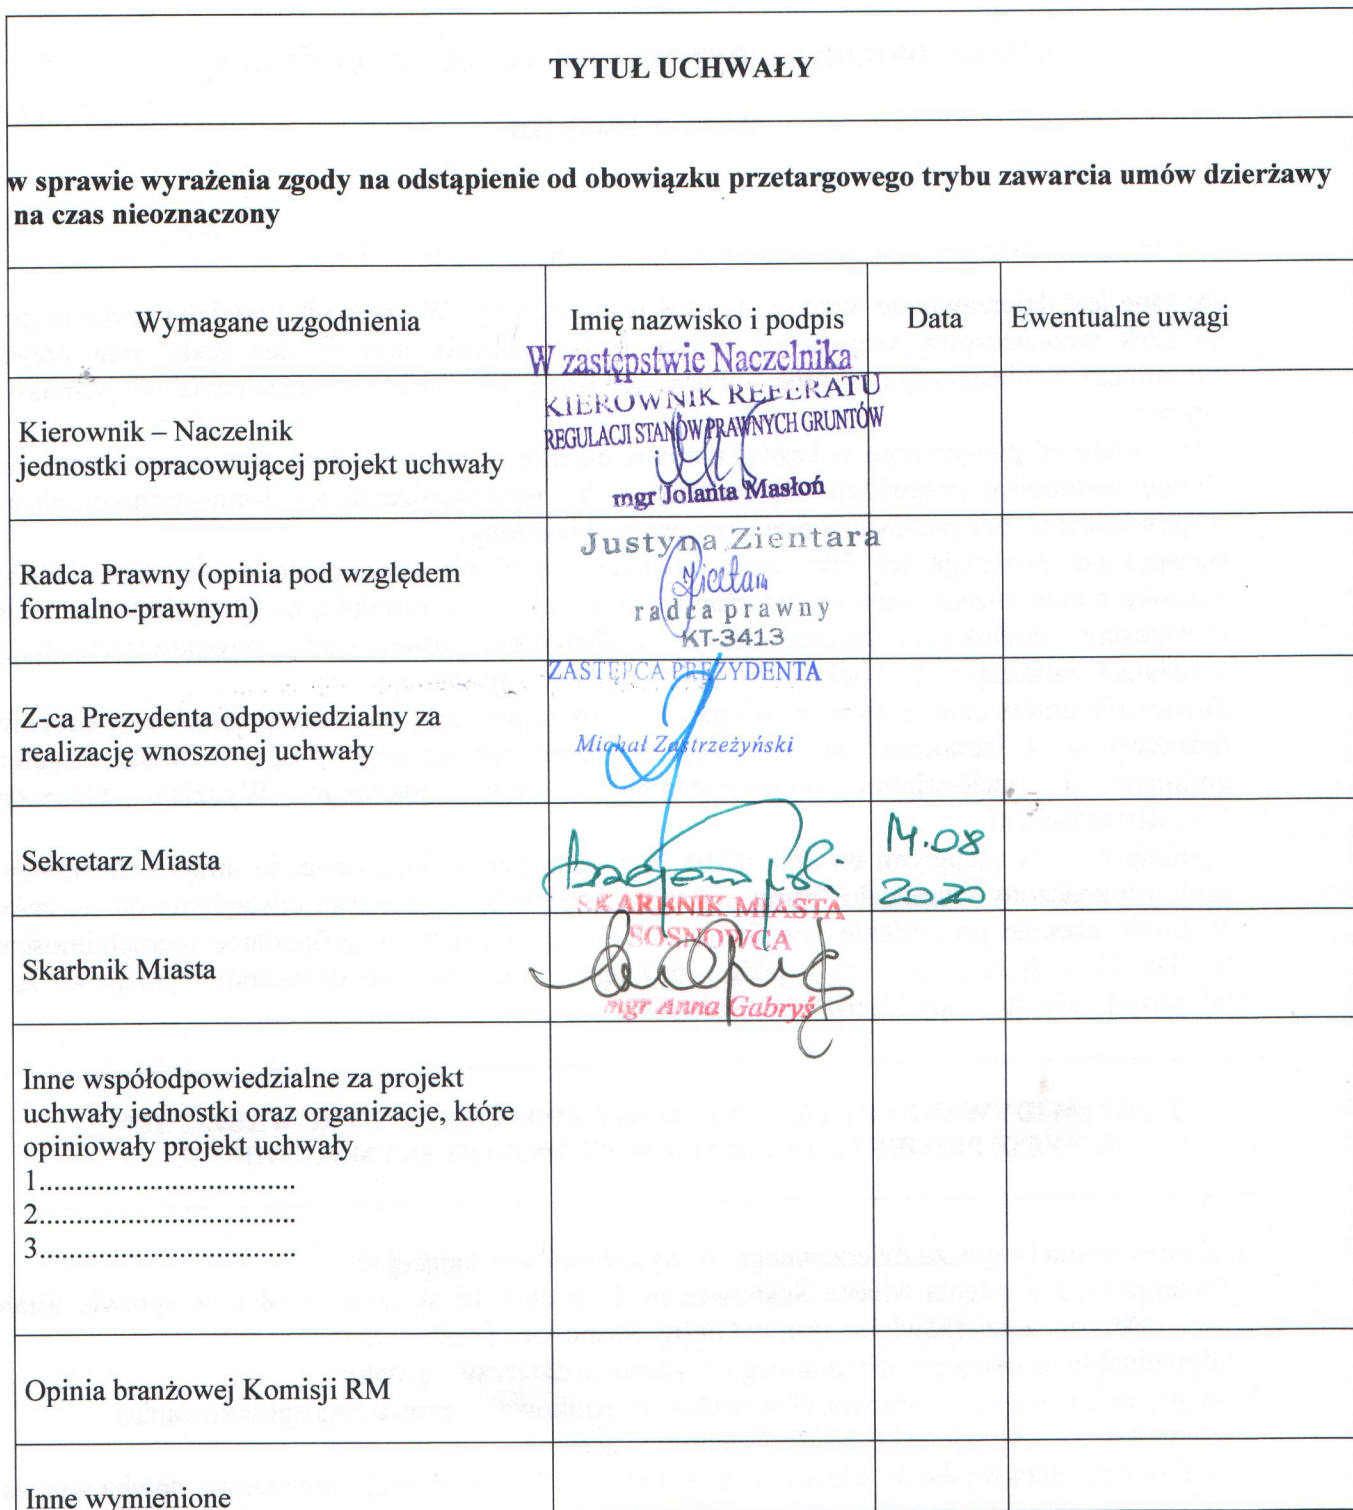 TYTUŁ UCHWAŁY
w sprawie wyrażenia zgody na odstąpienie od obowiązku przetargowego trybu zawarcia umów dzierżawy
na czas nieoznaczony
Wymagane uzgodnienia
Imię nazwisko i podpis
Data
Ewentualne uwagi
Kierownik – Naczelnik
jednostki opracowującej projekt uchwały
W zastępstwie Naczelnika
KIEROWNIK REFERATU
REGULACJI STANÓW PRAWNYCH GRUNTÓW
mgr Jolanta Masłoń
Radca Prawny (opinia pod względem
formalno-prawnym)
Justyna Zientara
radca prawny
KT-3413
Z-ca Prezydenta odpowiedzialny za
realizację wnoszonej uchwały
ZASTĘPCA PREZYDENTA
Michał Zastrzeżyński
Sekretarz Miasta
08
2020
Skarbnik Miasta
SKARBNIK MIASTA
SOSNOWCA
mgr Anna Gabryś
Inne współodpowiedzialne za projekt
uchwały jednostki oraz organizacje, które
opiniowały projekt uchwały
1...................................
2...................................
3...................................
Opinia branżowej Komisji RM
Inne wymienione